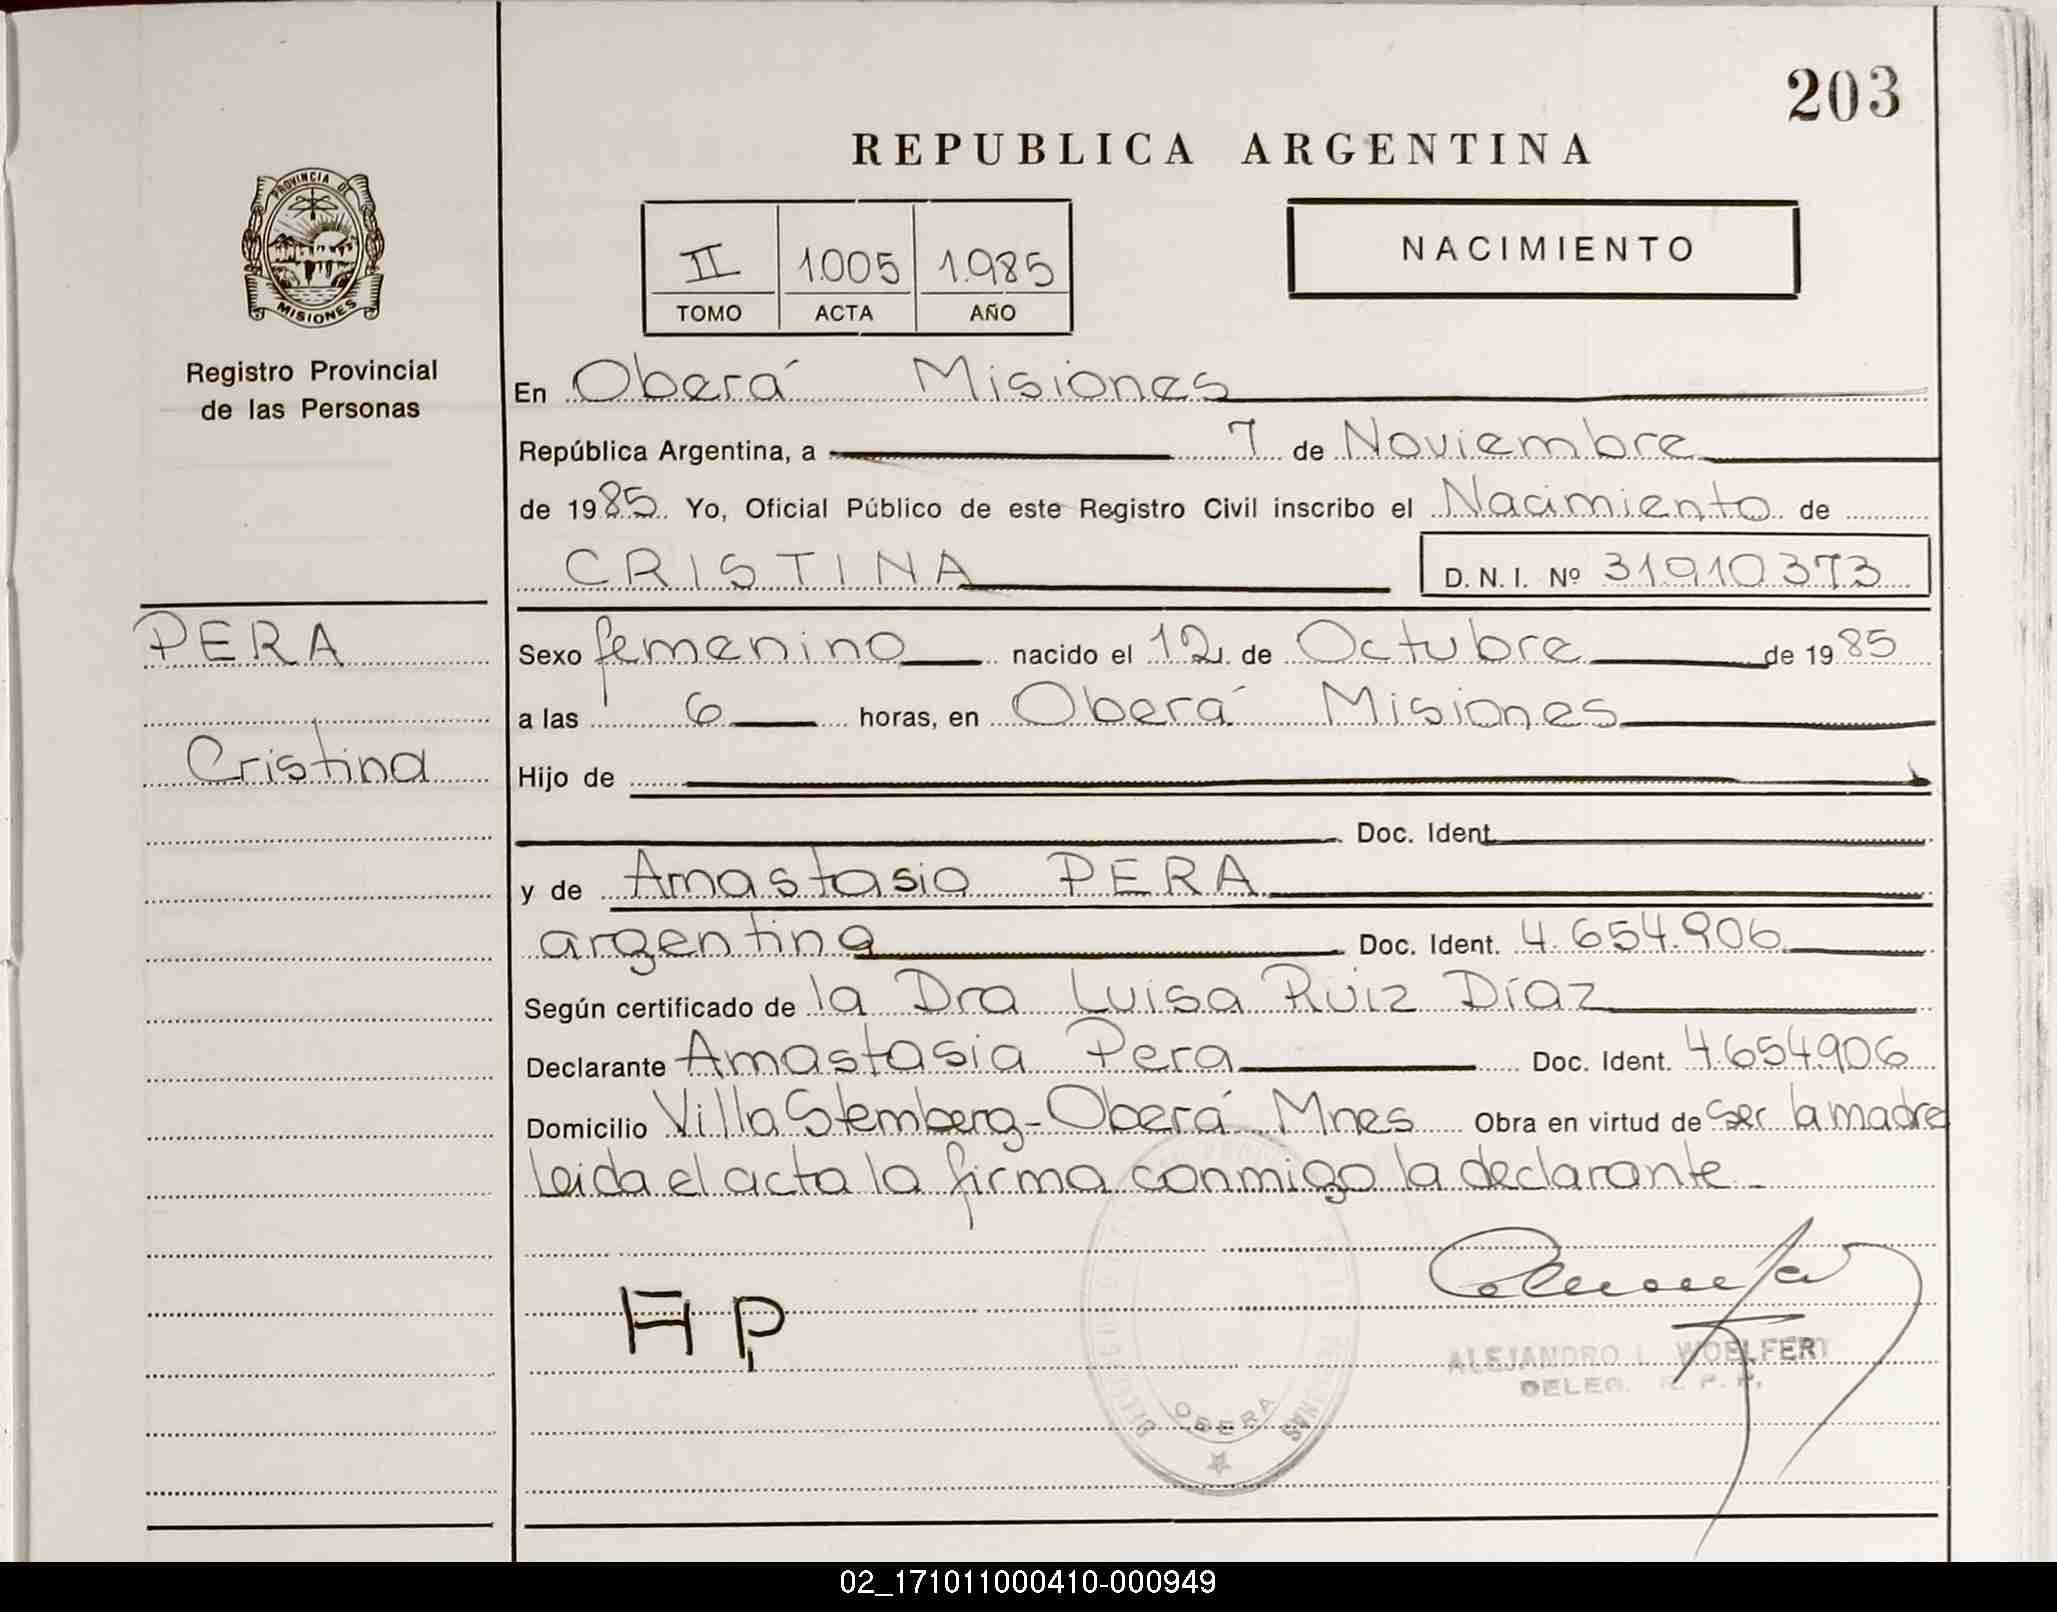 203
REPUBLICA ARGENTINA
PROVINCIA DE
MISIONES
Registro Provincial
de las Personas
II 1.005 1.985
TOMO ACTA AÑO
NACIMIENTO
En Oberá Misiones
República Argentina, a 7 de Noviembre
de 1985. Yo, Oficial Público de este Registro Civil inscribo el Nacimiento de
CRISTINA D. N. I. Nº 31910373
PERA
Cristina
Sexo femenino nacido el 12 de Octubre de 1985
a las 6 horas, en Oberá Misiones
Hijo de
Doc. Ident.
y de Amastasia PERA
argentina Doc. Ident. 4.654.906
Según certificado de la Dra Luisa Ruiz Díaz
Declarante Amastasia Pera Doc. Ident. 4.654906
Domicilio Villa Stemberg - Oberá Mnes Obra en virtud de ser la madre
leida el acta la firma conmigo la declarante -
A P
ALEJANDRO L. WOELFERT
DELEG. R. P. P.
OBERA
02_171011000410-000949